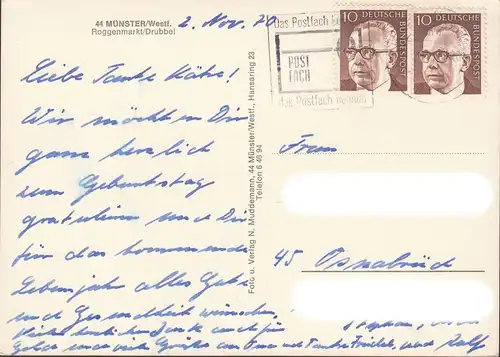 44 MÜNSTER/Westf.
Roggenmarkt/Drubbel
2. Nov. 70
Das Postfach
POST
FACH
das Postfach nennen
10 DEUTSCHE BUNDESPOST
10 DEUTSCHE BUNDESPOST
Liebe Tante Käthe!
Wir möchten Dir
ganz herzlich
zum Geburtstag
gratulieren und Dir
für das kommende
Lebensjahr alles Gute
und Gesundheit wünschen.
herzlichen Dank auch für
und viele Grüße an Oma und Tante Friedel, und Ralf
Foto u. Verlag N. Muddemann, 44 Münster/Westf., Hansaring 23
Telefon 6 46 94
Frau
45 Osnabrück